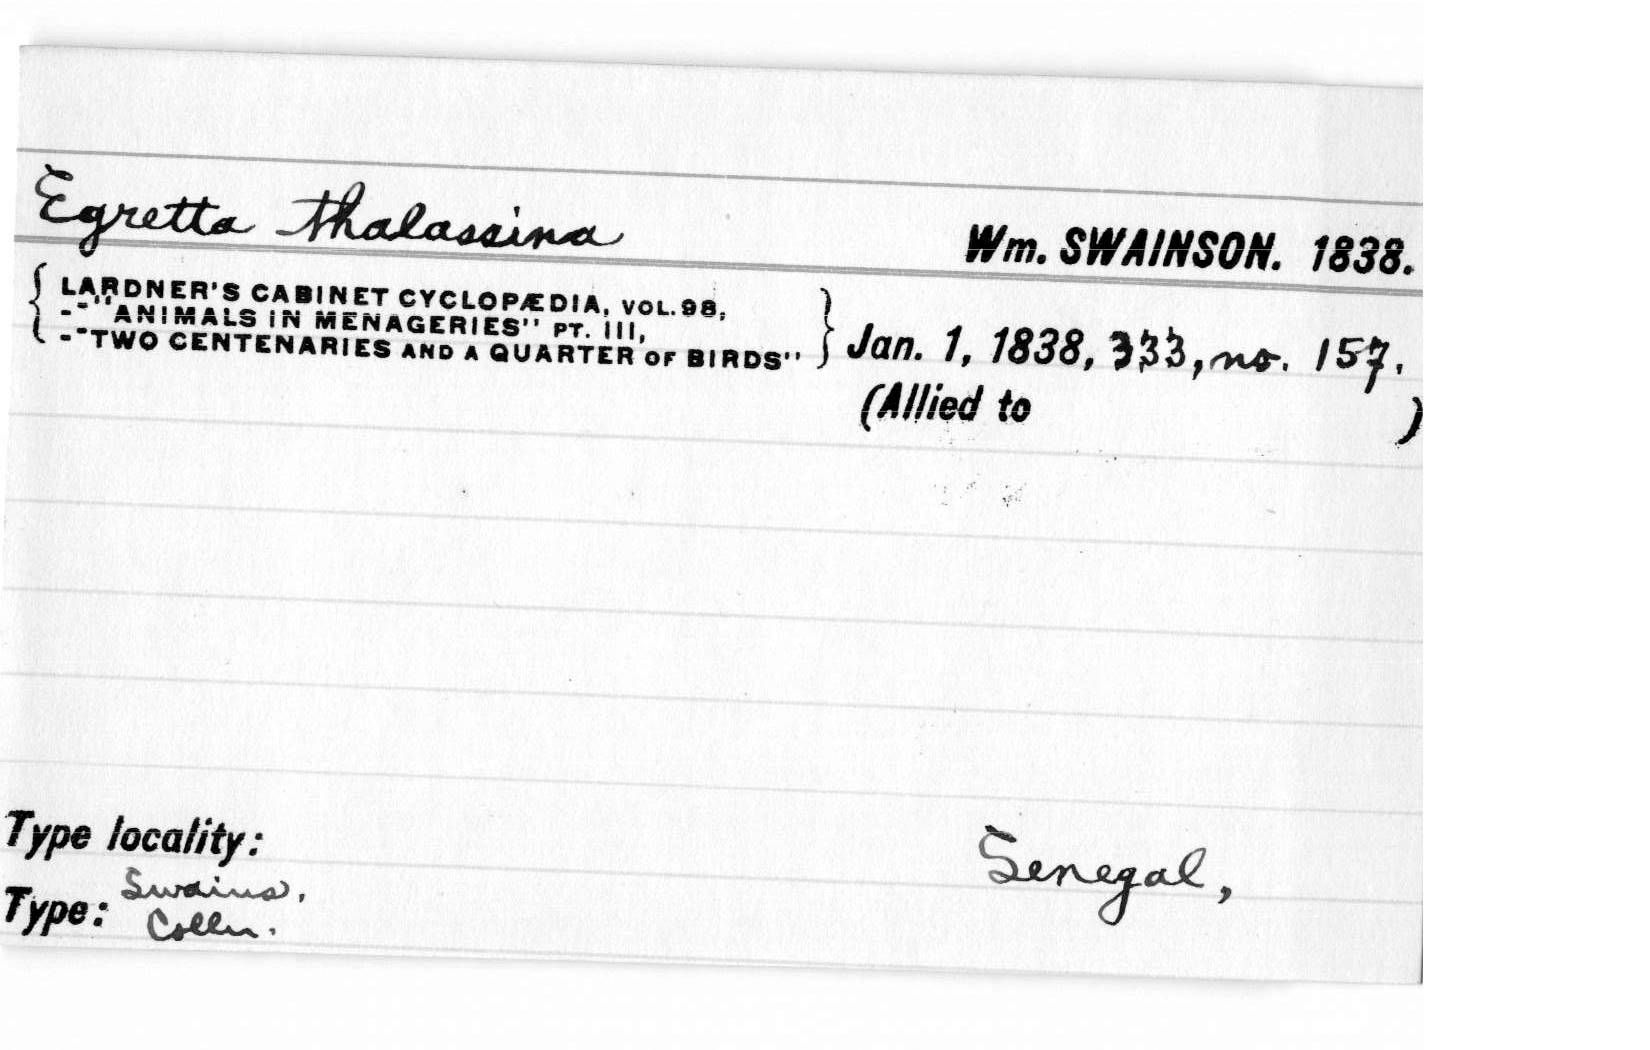 Egretta thalassina
Wm. SWAINSON. 1838.
{ LARDNER'S CABINET CYCLOPÆDIA, VOL. 98,
- - "ANIMALS IN MENAGERIES" PT. III,
- - "TWO CENTENARIES AND A QUARTER OF BIRDS" } Jan. 1, 1838, 333, no. 157.
(Allied to )
Type locality: Senegal,
Type: Swains.
Colln.